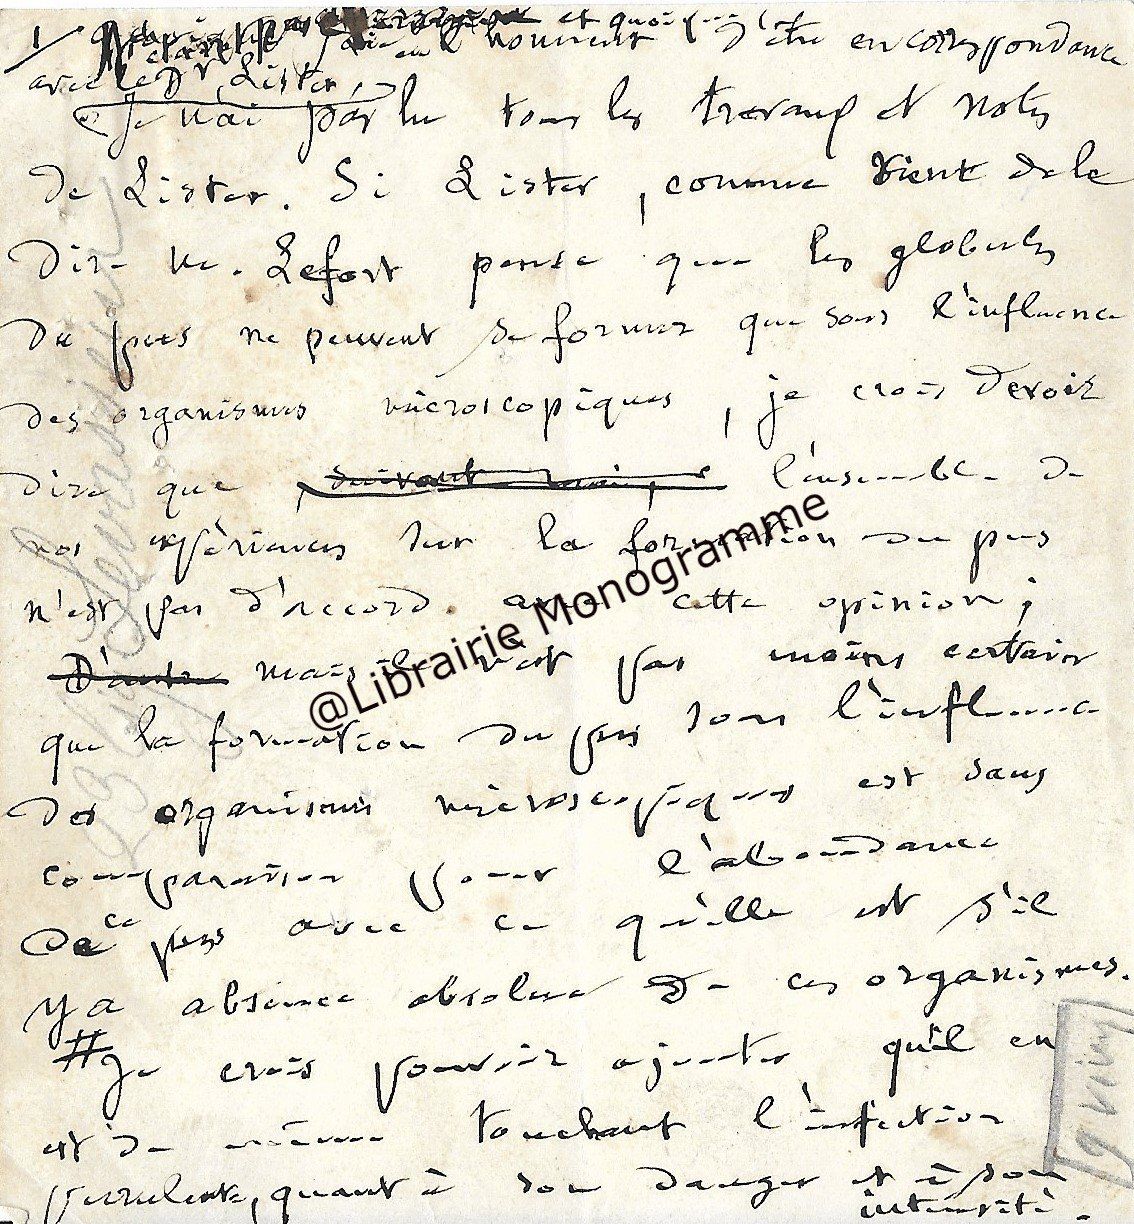 1/ et quoique j'aie eu l'honneur d'être en correspondance
avec le Dr Lister,
Je n'ai pas lu tous les travaux et notes
de Lister. Si Lister, comme vient de le
dire M. Lefort pense que les globules
du pus ne peuvent se former que sous l'influence
des organismes microscopiques, je crois devoir
dire que, suivant moi, l'ensemble de
nos expériences sur la formation du pus
n'est pas d'accord avec cette opinion;
D'autre mais il n'est pas moins certain
que la formation du pus sous l'influence
des organismes microscopiques est sans
comparaison pour l'abondance
de ce pus avec ce qu'elle est s'il
y a absence absolue de ces organismes.
# Je crois pouvoir ajouter qu'il en
est de même touchant l'infection
purulente, quant à son danger et à son
intensité.
@Librairie Monogramme